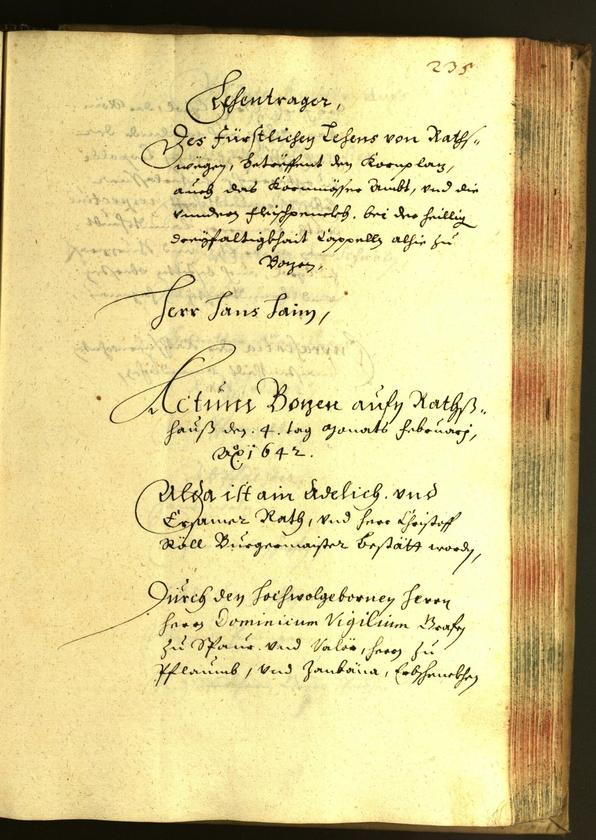 235
Lehentrager,
Des fürstlichen Lehens von Raths-
wegen, betreffent den Kornplaz,
auch das Kornmösser Ambt, und die
undern Fleischpenckh. bei der heillig
dreyfaltigkhait Cappelln alhie zu
Bozen,
Herr Hans Haim,
Actum Bozen aufm Rathß-
hauß den .4. tag Monats Februarj,
Aō 1642.
Alda ist ain Adelich. und
Ersamer Rath, und herr Christoff
Röll Burgermaister bestätt worden,
Durch den Hochwolgebornen Herrn
Herrn Dominicum Vigilium Grafen
zu Spaur. und Valör, herrn zu
Pflaumb, und Zambana, Erbschenckhen